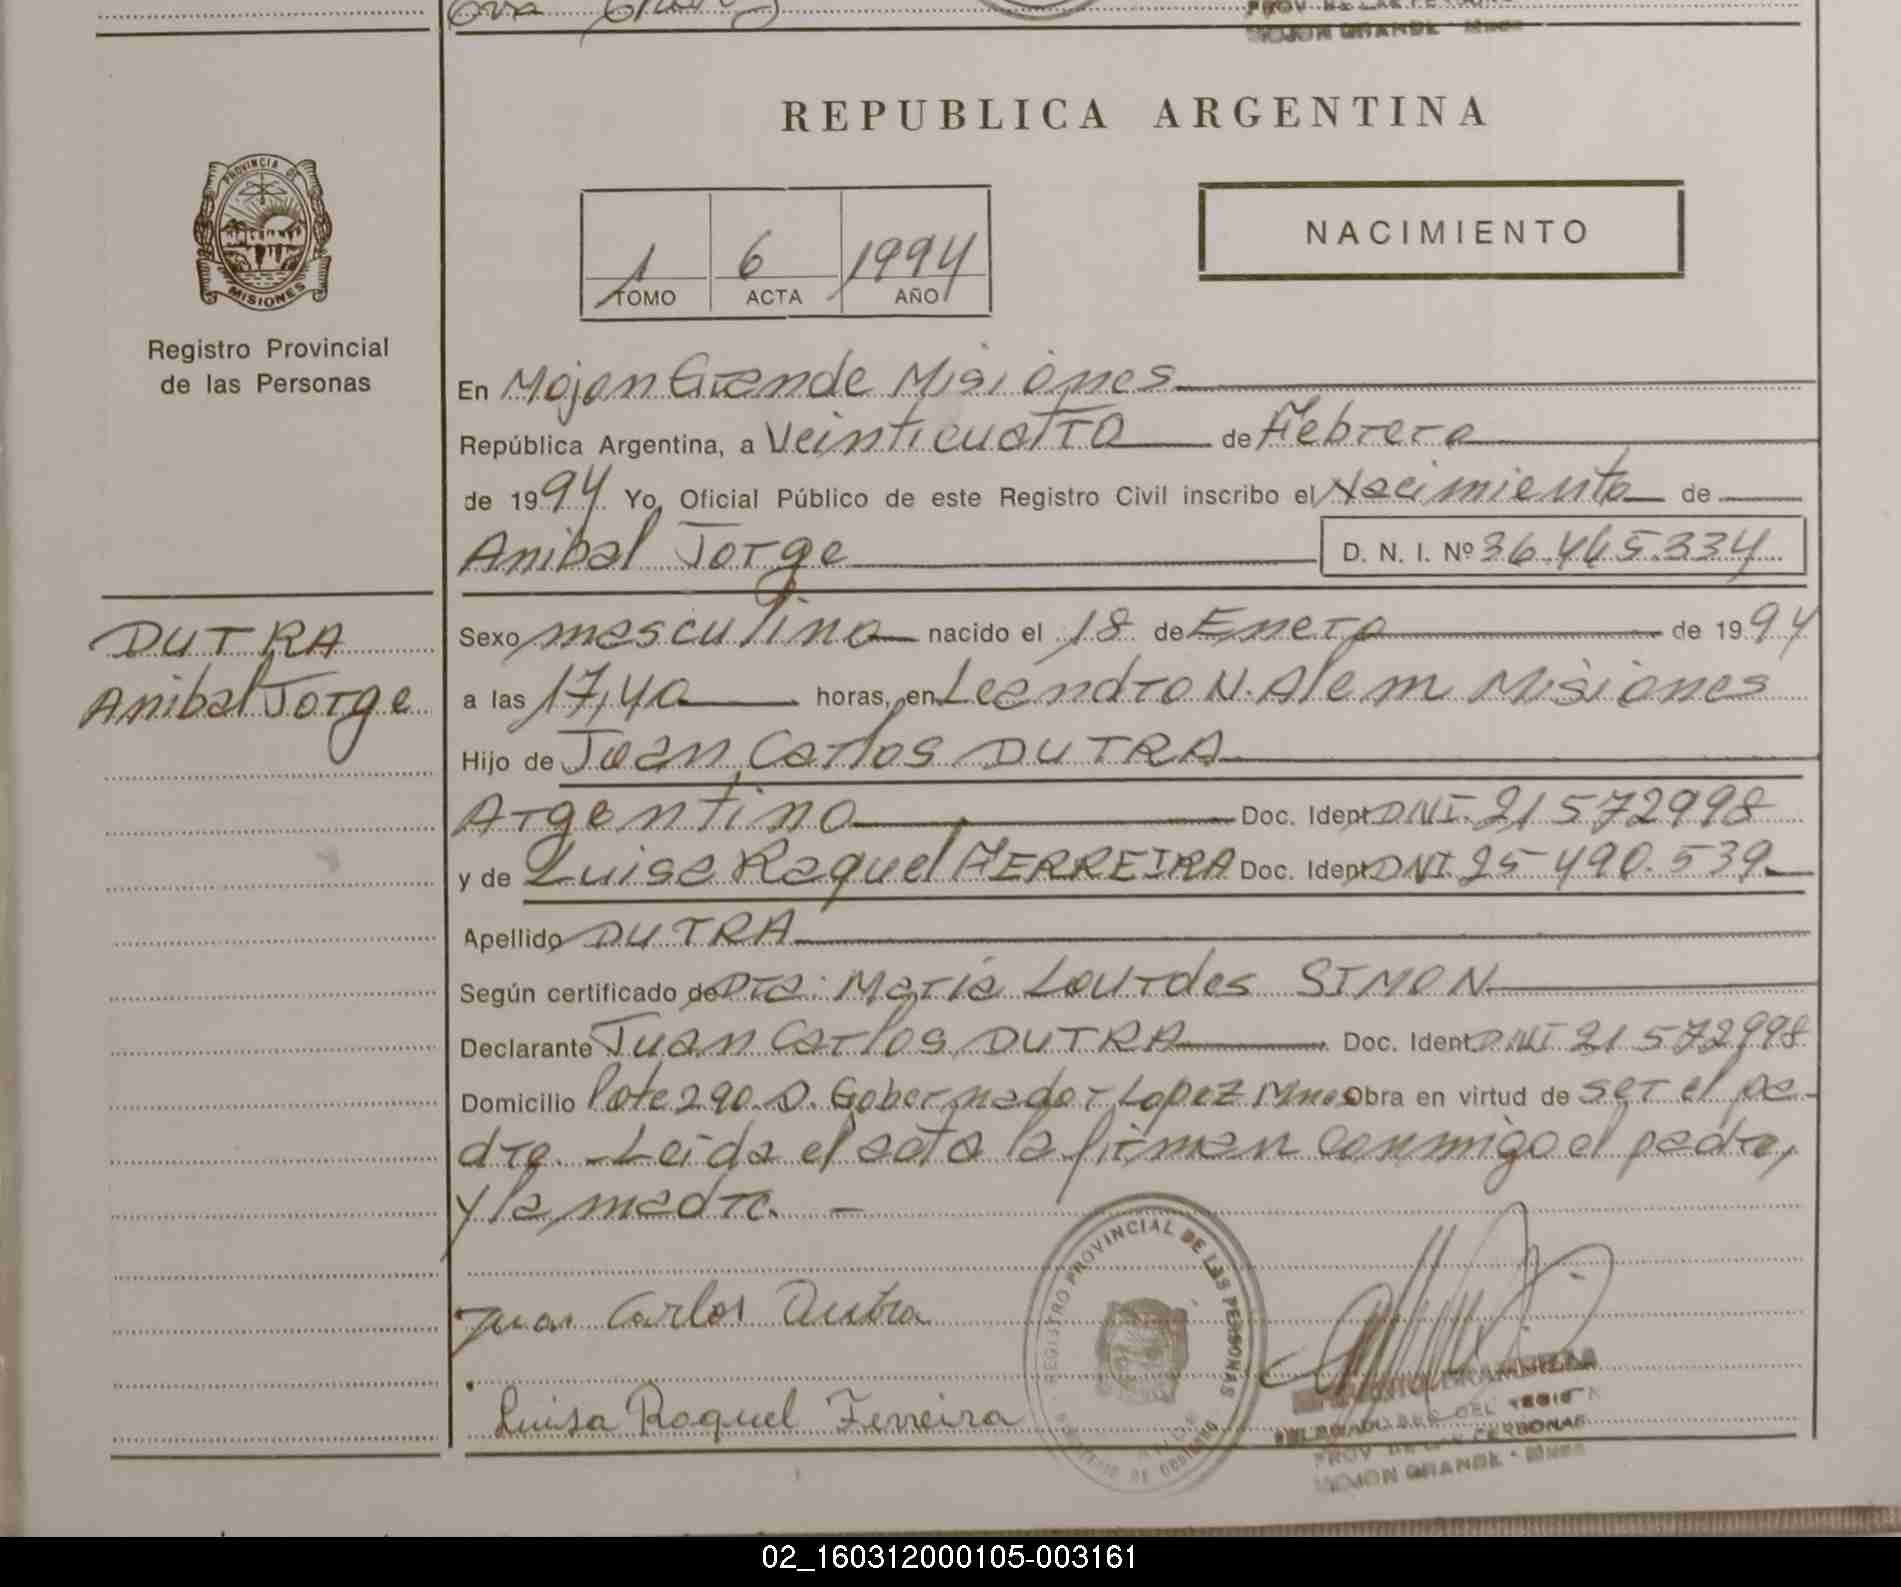 REPUBLICA ARGENTINA
PROVINCIA DE
MISIONES
Registro Provincial
de las Personas
1 6 1994
TOMO ACTA AÑO
NACIMIENTO
En Mojon Grande Misiones
República Argentina, a Veinticuatro de Febrero
de 1994 Yo, Oficial Público de este Registro Civil inscribo el Nacimiento de
Anibal Jorge D. N. I. Nº 36.465.334
DUTRA
Anibal Jorge
Sexo masculino nacido el 18 de Enero de 1994
a las 17,40 horas, en Leandro N. Alem Misiones
Hijo de Juan Carlos DUTRA
Argentino Doc. Ident DNI. 21572998
y de Luisa Raquel FERREIRA Doc. Ident DNI. 25 490.539
Apellido DUTRA
Según certificado de Dra: María Lourdes SIMON
Declarante Juan Carlos DUTRA Doc. Ident DNI 21 572998
Domicilio lote 290. D. Gobernador Lopez Mnes Obra en virtud de ser el pa-
dre. - Leida el acta la firman conmigo el padre,
y la madre. -
Juan Carlos Dutra
Luisa Raquel Ferreira
REGISTRO PROVINCIAL DE LAS PERSONAS
MOJON GRANDE - Mnes
02_160312000105-003161